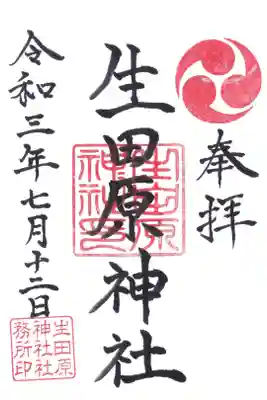 奉拝
生田原神社
生田原
神社印
令和三年七月十二日
生田原
神社社
務所印